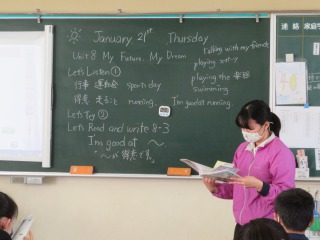 January 21st Thursday
Unit 8 My Future, My Dream
Let's Listen ①
行事 運動会 sports day
得意 走ること running I'm good at running.
Let's Try ②
Let's Read and write 8-3
I'm good at 〜
「〜が得意です。」
talking with my friends
playing
playing the 楽器
swimming
連絡